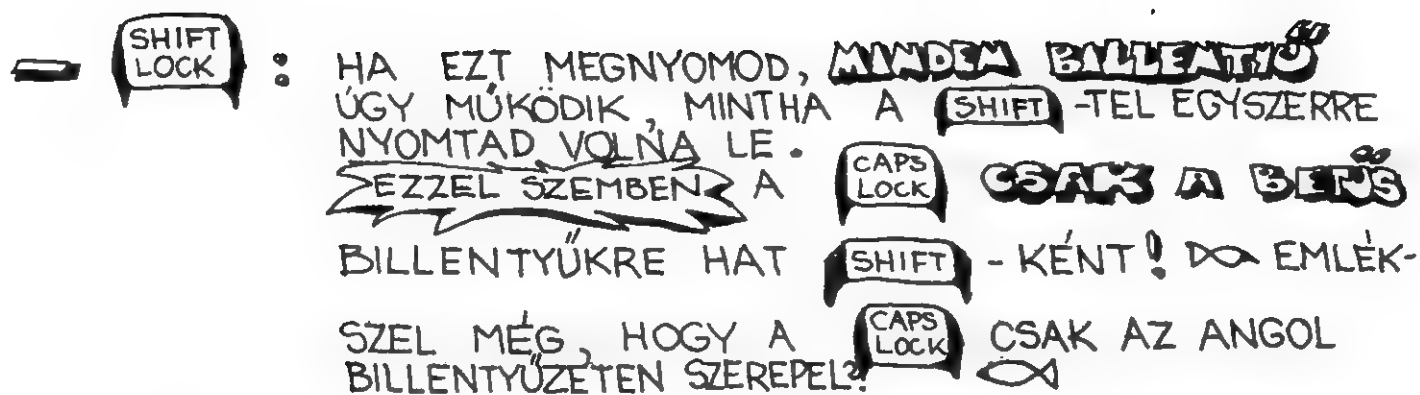 – SHIFT LOCK : HA EZT MEGNYOMOD, MINDEN BILLENTYŰ
ÚGY MŰKÖDIK, MINTHA A SHIFT -TEL EGYSZERRE
NYOMTAD VOLNA LE.
EZZEL SZEMBEN A CAPS LOCK CSAK A BETŰS
BILLENTYŰKRE HAT SHIFT - KÉNT! EMLÉK-
SZEL MÉG, HOGY A CAPS LOCK CSAK AZ ANGOL
BILLENTYŰZETEN SZEREPEL?!